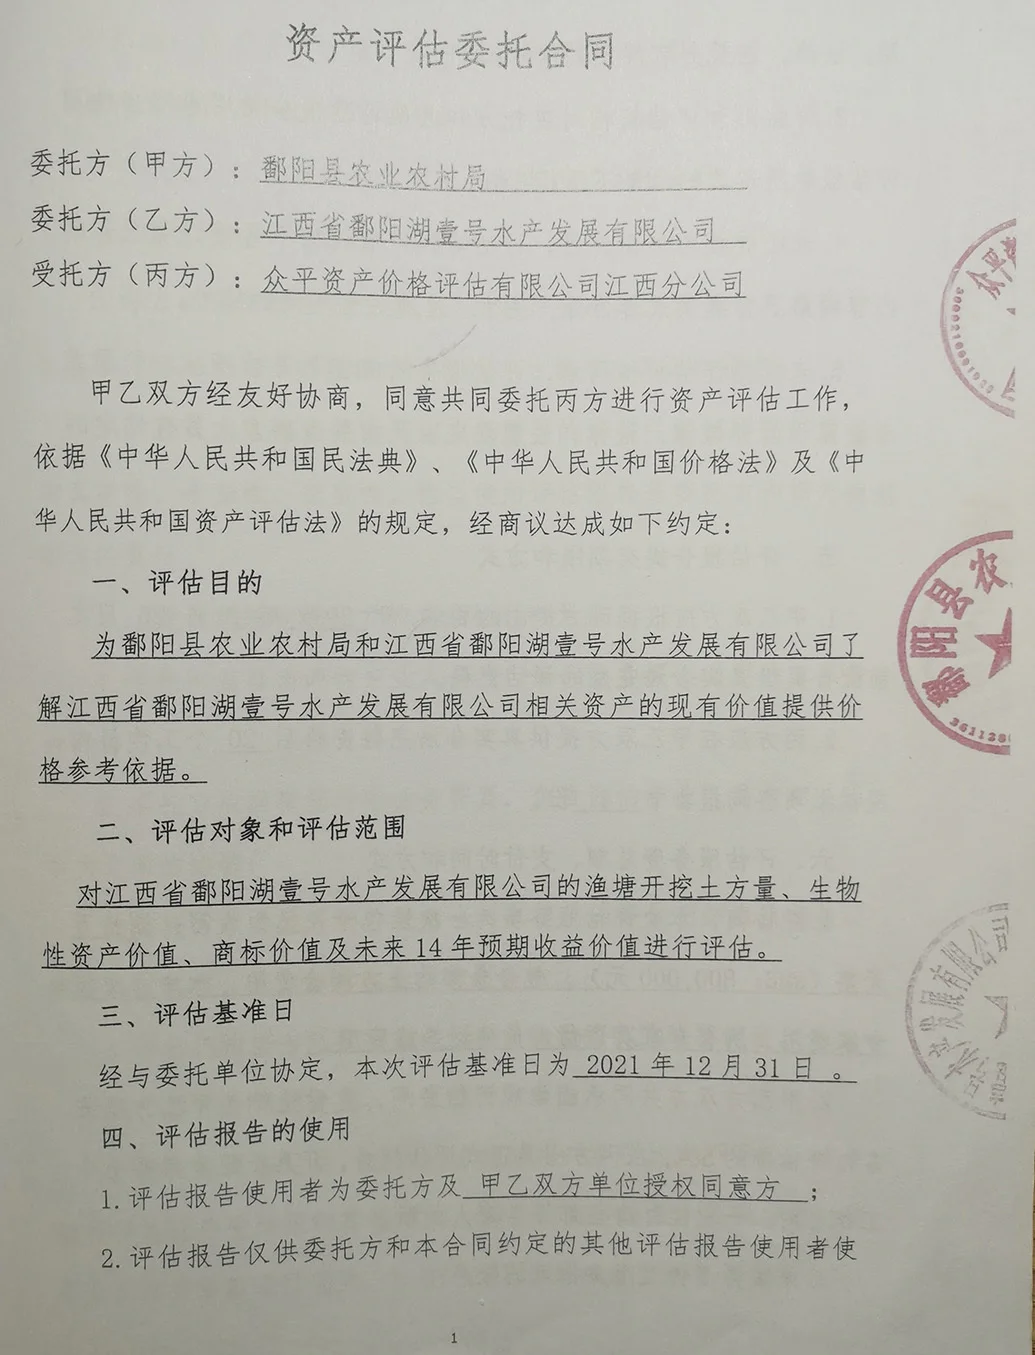 资产评估委托合同
委托方（甲方）：鄱阳县农业农村局
委托方（乙方）：江西省鄱阳湖壹号水产发展有限公司
受托方（丙方）：众平资产价格评估有限公司江西分公司
甲乙双方经友好协商，同意共同委托丙方进行资产评估工作，
依据《中华人民共和国民法典》、《中华人民共和国价格法》及《中
华人民共和国资产评估法》的规定，经商议达成如下约定：
一、评估目的
为鄱阳县农业农村局和江西省鄱阳湖壹号水产发展有限公司了
解江西省鄱阳湖壹号水产发展有限公司相关资产的现有价值提供价
格参考依据。
二、评估对象和评估范围
对江西省鄱阳湖壹号水产发展有限公司的渔塘开挖土方量、生物
性资产价值、商标价值及未来 14 年预期收益价值进行评估。
三、评估基准日
经与委托单位协定，本次评估基准日为 2021 年 12 月 31 日 。
四、评估报告的使用
1.评估报告使用者为委托方及 甲乙双方单位授权同意方 ；
2.评估报告仅供委托方和本合同约定的其他评估报告使用者使
1
众平
鄱阳县农
号水产发展有限公司